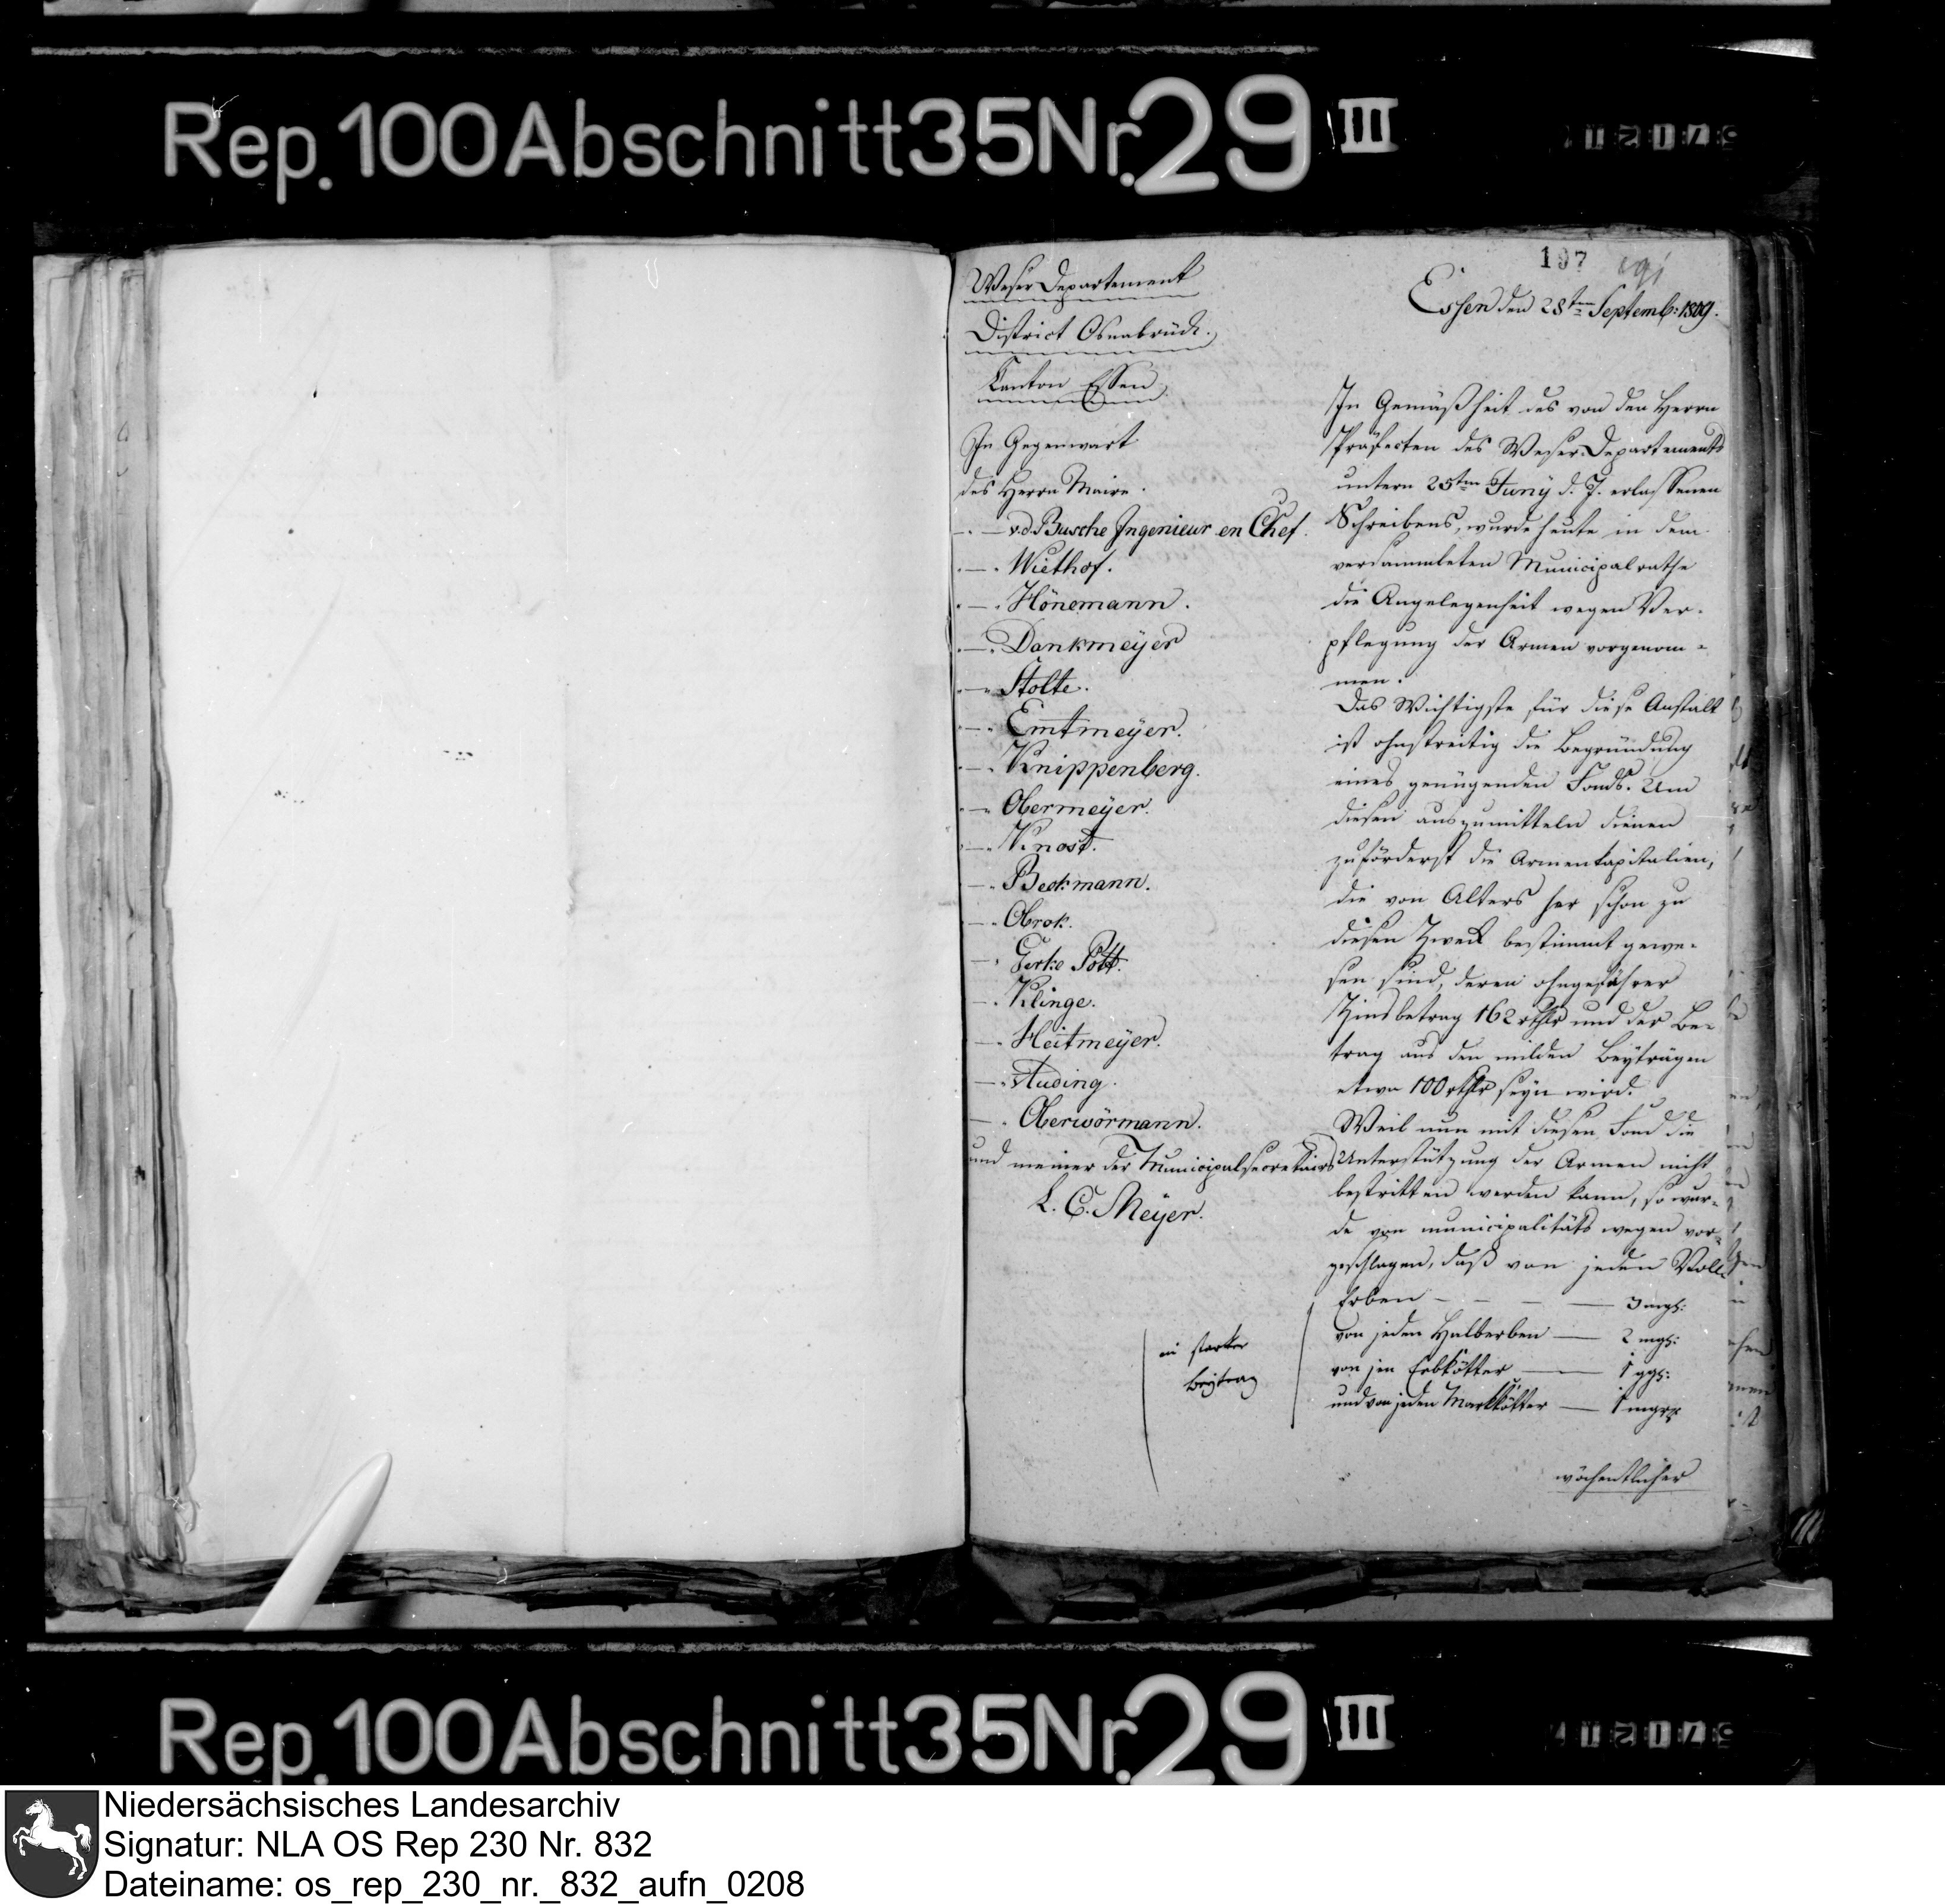 Rep. 100 Abschnitt 35 Nr. 29 III
197
Weser Departement
District Osnabrück.
Canton Essen.
In Gegenwart
des Herrn Maire.
— v. d. Busche Ingenieur en Chef.
— Wiethof.
— Hönemann.
— Dankmeÿer
— Stolte.
— Emtmeÿer.
— Knippenberg.
— Obermeÿer.
— Knost.
— Beckmann.
— Obrok.
— Gerke Pott.
— Klinge.
— Heitmeÿer.
— Auding.
— Oberwörmann.
und meiner der Municipalsecretairs
L. C. Meÿer.
Essen den 28ten Septemb: 1809.
In Gemäßheit des von den Herrn
Präfecten des Weser-Departements
untern 25ten Junÿ d. J. erlassenen
Schreibens, wurde heute in dem
versammleten Municipalrathe
die Angelegenheit wegen Ver-
pflegung der Armen vorgenom-
men.
Das Wichtigste für diese Anstalt
ist ohnstreitig die Begründung
eines genügenden Fonds. Um
diesen auszumitteln dienen
zuförderst die Armenkapitalien,
die von Alters her schon zu
diesen Zweck bestimmt gewe-
sen sind, deren ohngefährer
Zinsbetrag 162 rthlr und der Be-
trag aus den milden Beÿträgen
etwa 100 rthlr seÿn wird.
Weil nun mit diesen Fond die
Unterstützung der Armen nicht
bestritten werden kann, so wur-
de von municipalitäts wegen vor-
geschlagen, daß von jeden Voll-
Erben — — — — 3 mgs:
von jeden Halberben — 2 mgs:
von jen Erbkötter — 1 ggs:
und von jeden Markkötter — 1 mgr
starker
Beÿtrag
wöchentlicher
Rep. 100 Abschnitt 35 Nr. 29 III
Niedersächsisches Landesarchiv
Signatur: NLA OS Rep 230 Nr. 832
Dateiname: os_rep_230_nr._832_aufn_0208